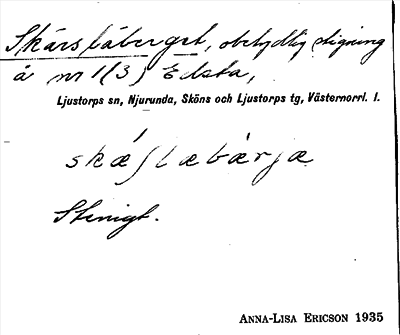 Skärslåberget, obetydlig stigning
å nr 1(3) Edsta,
Ljustorps sn, Njurunda, Sköns och Ljustorps tg, Västernorrl. l.
skæʃlæbærjæ
Stenigt.
ANNA-LISA ERICSON 1935